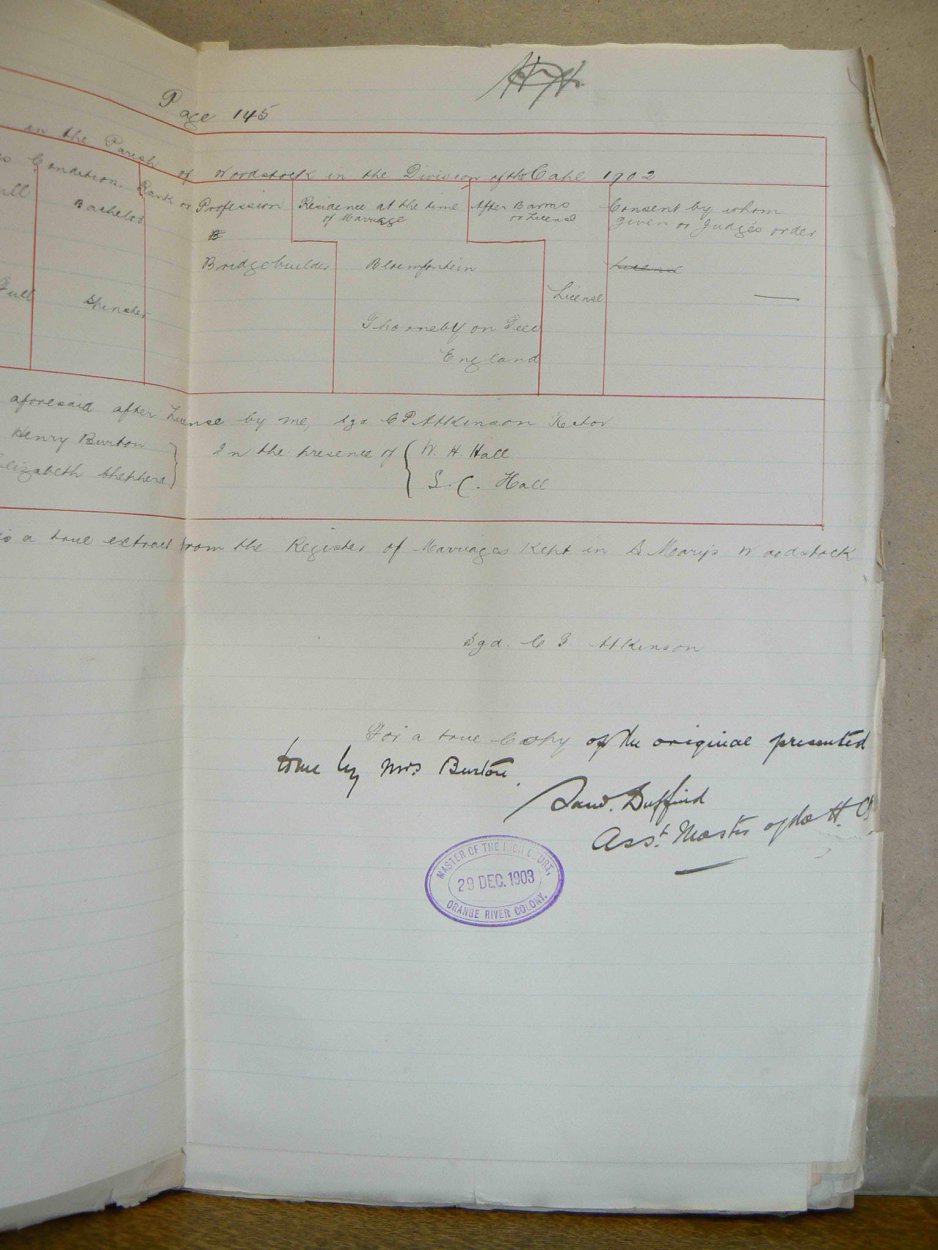 Page 145
in the Parish of Woodstock in the Division of the Cape 1902
Condition. Rank or Profession Residence at the time of Marriage After Banns or License Consent by whom given or Judges order
Full Bachelor
B
Bridgebuilder Bloemfontein License
License
Full Spinster
Thorneby on Tees
England
aforesaid after License by me, Sgd C P Attkinson Rector
Henry Burton
Elizabeth Shepherd
In the presence of
W. H. Hall
S. C. Hall
is a true extract from the Register of Marriages Kept in St Mary's Woodstock
Sgd. C P Atkinson
For a true Copy of the original presented
to me by Mrs Burton.
Asst. Master of the H. C.
MASTER OF THE HIGH COURT,
29 DEC. 1903
ORANGE RIVER COLONY.